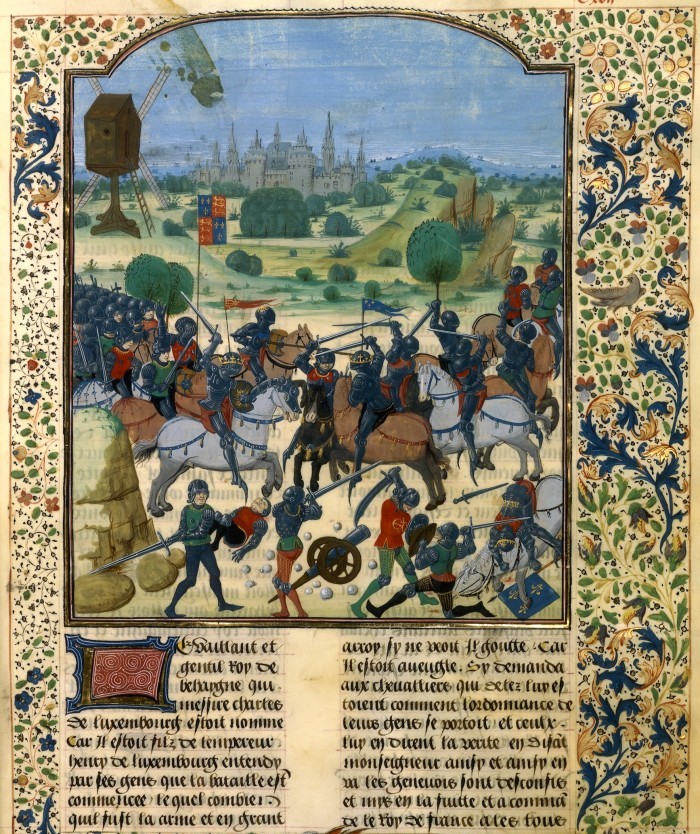 Le vaillant et
gentil Roy de
behaigne qui
messire charles
de luxembourg estoit nomme
Car Il estoit filz de lempereur
henry de luxembourg entendy
par ses gens que la bataille est
commencee lequel combien
quil fust la arme et en grant
arroy sy ne veoit Il goutte. Car
Il estoit aueugle. Sy demanda
aux cheualliers qui delez luy es
toient comment lordonnance de
leurs gens se portoit et ceulx
luy en dirent la verite en disāt
monseigneur ainsy et ainsy en
va les geneuois sont desconfis
et mys en la fuitte et a commā
de le Roy de france a les tous